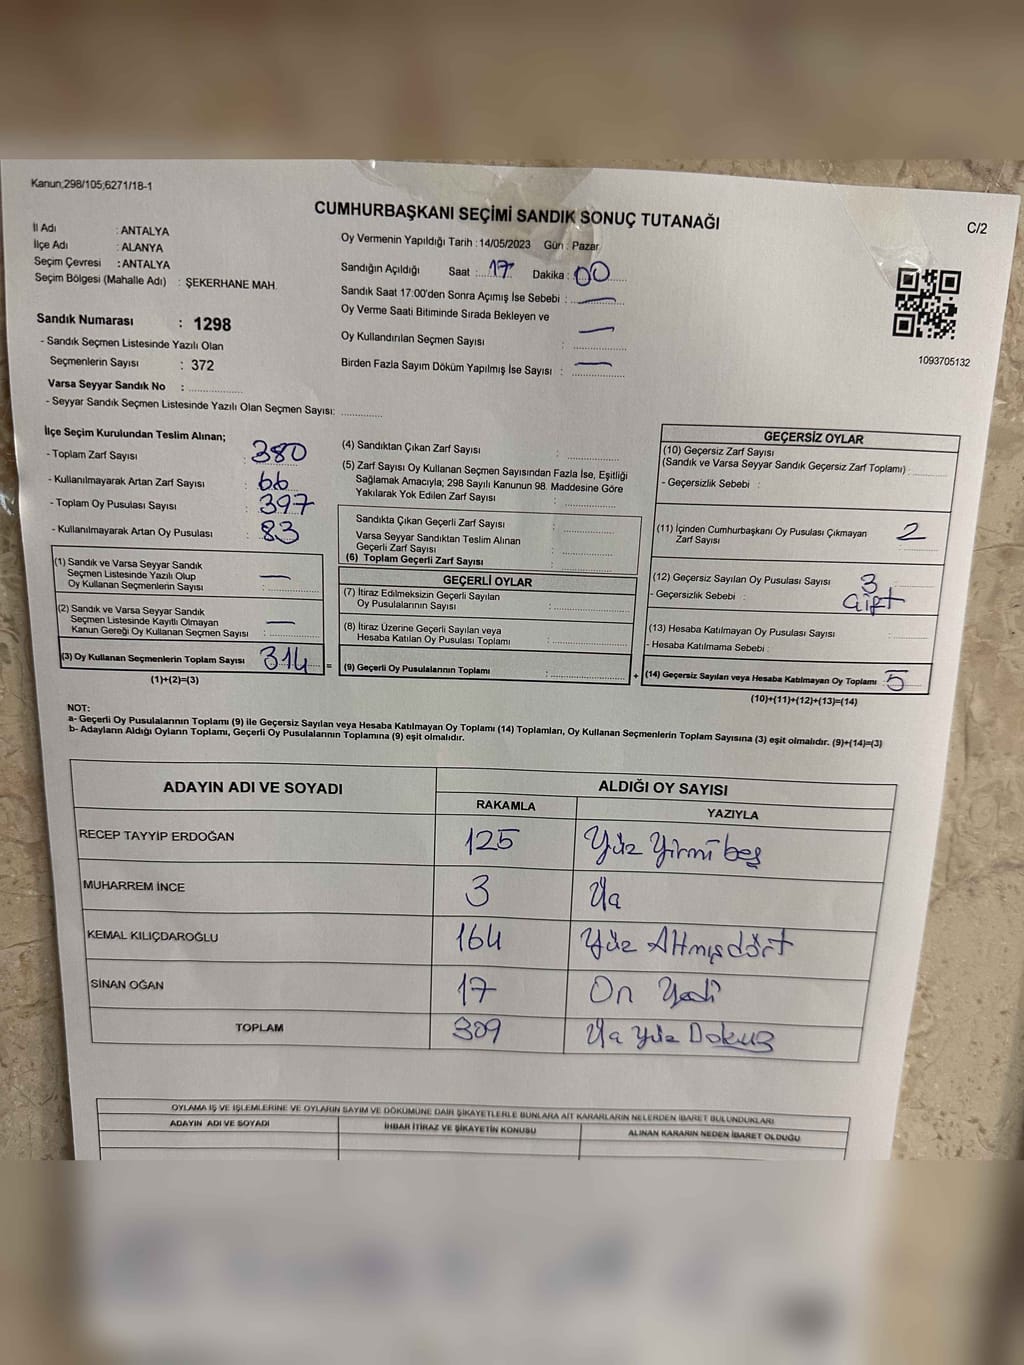 Kanun;298/105;6271/18-1
CUMHURBAŞKANI SEÇİMİ SANDIK SONUÇ TUTANAĞI
C/2
İl Adı : ANTALYA
İlçe Adı : ALANYA
Seçim Çevresi : ANTALYA
Seçim Bölgesi (Mahalle Adı) : ŞEKERHANE MAH.
Oy Vermenin Yapıldığı Tarih : 14/05/2023 Gün : Pazar
Sandığın Açıldığı Saat : 17 Dakika : 00
Sandık Saat 17:00'den Sonra Açımış İse Sebebi : —
Oy Verme Saati Bitiminde Sırada Bekleyen ve
Oy Kullandırılan Seçmen Sayısı : —
Birden Fazla Sayım Döküm Yapılmış İse Sayısı : —
1093705132
Sandık Numarası : 1298
- Sandık Seçmen Listesinde Yazılı Olan
Seçmenlerin Sayısı : 372
Varsa Seyyar Sandık No :
- Seyyar Sandık Seçmen Listesinde Yazılı Olan Seçmen Sayısı:
İlçe Seçim Kurulundan Teslim Alınan;
- Toplam Zarf Sayısı : 380
- Kullanılmayarak Artan Zarf Sayısı : 66
- Toplam Oy Pusulası Sayısı : 397
- Kullanılmayarak Artan Oy Pusulası : 83
(1) Sandık ve Varsa Seyyar Sandık
Seçmen Listesinde Yazılı Olup
Oy Kullanan Seçmenlerin Sayısı : —
(2) Sandık ve Varsa Seyyar Sandık
Seçmen Listesinde Kayıtlı Olmayan
Kanun Gereği Oy Kullanan Seçmen Sayısı : —
(3) Oy Kullanan Seçmenlerin Toplam Sayısı : 314 =
(1)+(2)=(3)
(4) Sandıktan Çıkan Zarf Sayısı :
(5) Zarf Sayısı Oy Kullanan Seçmen Sayısından Fazla İse, Eşitliği
Sağlamak Amacıyla; 298 Sayılı Kanunun 98. Maddesine Göre
Yakılarak Yok Edilen Zarf Sayısı :
Sandıkta Çıkan Geçerli Zarf Sayısı :
Varsa Seyyar Sandıktan Teslim Alınan
Geçerli Zarf Sayısı :
(6) Toplam Geçerli Zarf Sayısı :
GEÇERLİ OYLAR
(7) İtiraz Edilmeksizin Geçerli Sayılan
Oy Pusulalarının Sayısı :
(8) İtiraz Üzerine Geçerli Sayılan veya
Hesaba Katılan Oy Pusulası Toplamı :
(9) Geçerli Oy Pusulalarının Toplamı : +
GEÇERSİZ OYLAR
(10) Geçersiz Zarf Sayısı
(Sandık ve Varsa Seyyar Sandık Geçersiz Zarf Toplamı) :
- Geçersizlik Sebebi :
(11) İçinden Cumhurbaşkanı Oy Pusulası Çıkmayan
Zarf Sayısı : 2
(12) Geçersiz Sayılan Oy Pusulası Sayısı : 3
- Geçersizlik Sebebi : Çift
(13) Hesaba Katılmayan Oy Pusulası Sayısı :
- Hesaba Katılmama Sebebi :
(14) Geçersiz Sayılan veya Hesaba Katılmayan Oy Toplamı : 5
(10)+(11)+(12)+(13)=(14)
NOT:
a- Geçerli Oy Pusulalarının Toplamı (9) ile Geçersiz Sayılan veya Hesaba Katılmayan Oy Toplamı (14) Toplamları, Oy Kullanan Seçmenlerin Toplam Sayısına (3) eşit olmalıdır. (9)+(14)=(3)
b- Adayların Aldığı Oyların Toplamı, Geçerli Oy Pusulalarının Toplamına (9) eşit olmalıdır.
ADAYIN ADI VE SOYADI
ALDIĞI OY SAYISI
RAKAMLA YAZIYLA
RECEP TAYYİP ERDOĞAN 125 Yüz Yirmi beş
MUHARREM İNCE 3 Üç
KEMAL KILIÇDAROĞLU 164 Yüz Altmışdört
SİNAN OĞAN 17 On Yedi
TOPLAM 309 Üç Yüz Dokuz
OYLAMA İŞ VE İŞLEMLERİNE VE OYLARIN SAYIM VE DÖKÜMÜNE DAİR ŞİKAYETLERLE BUNLARA AİT KARARLARIN NELERDEN İBARET BULUNDUKLARI
ADAYIN ADI VE SOYADI İHBAR İTİRAZ VE ŞİKAYETİN KONUSU ALINAN KARARIN NEDEN İBARET OLDUĞU